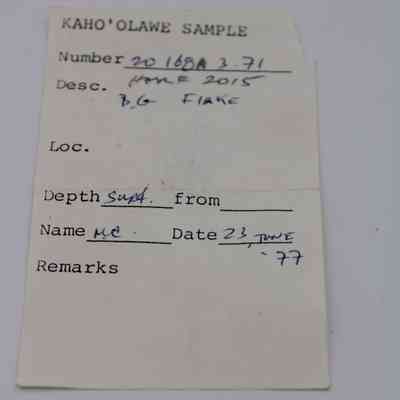 KAHO'OLAWE SAMPLE
Number 20 168A 3.71
Desc. 2015
B.G FLAKE
Loc.
Depth Surf. from
Name MC. Date 23, JUNE
'77
Remarks